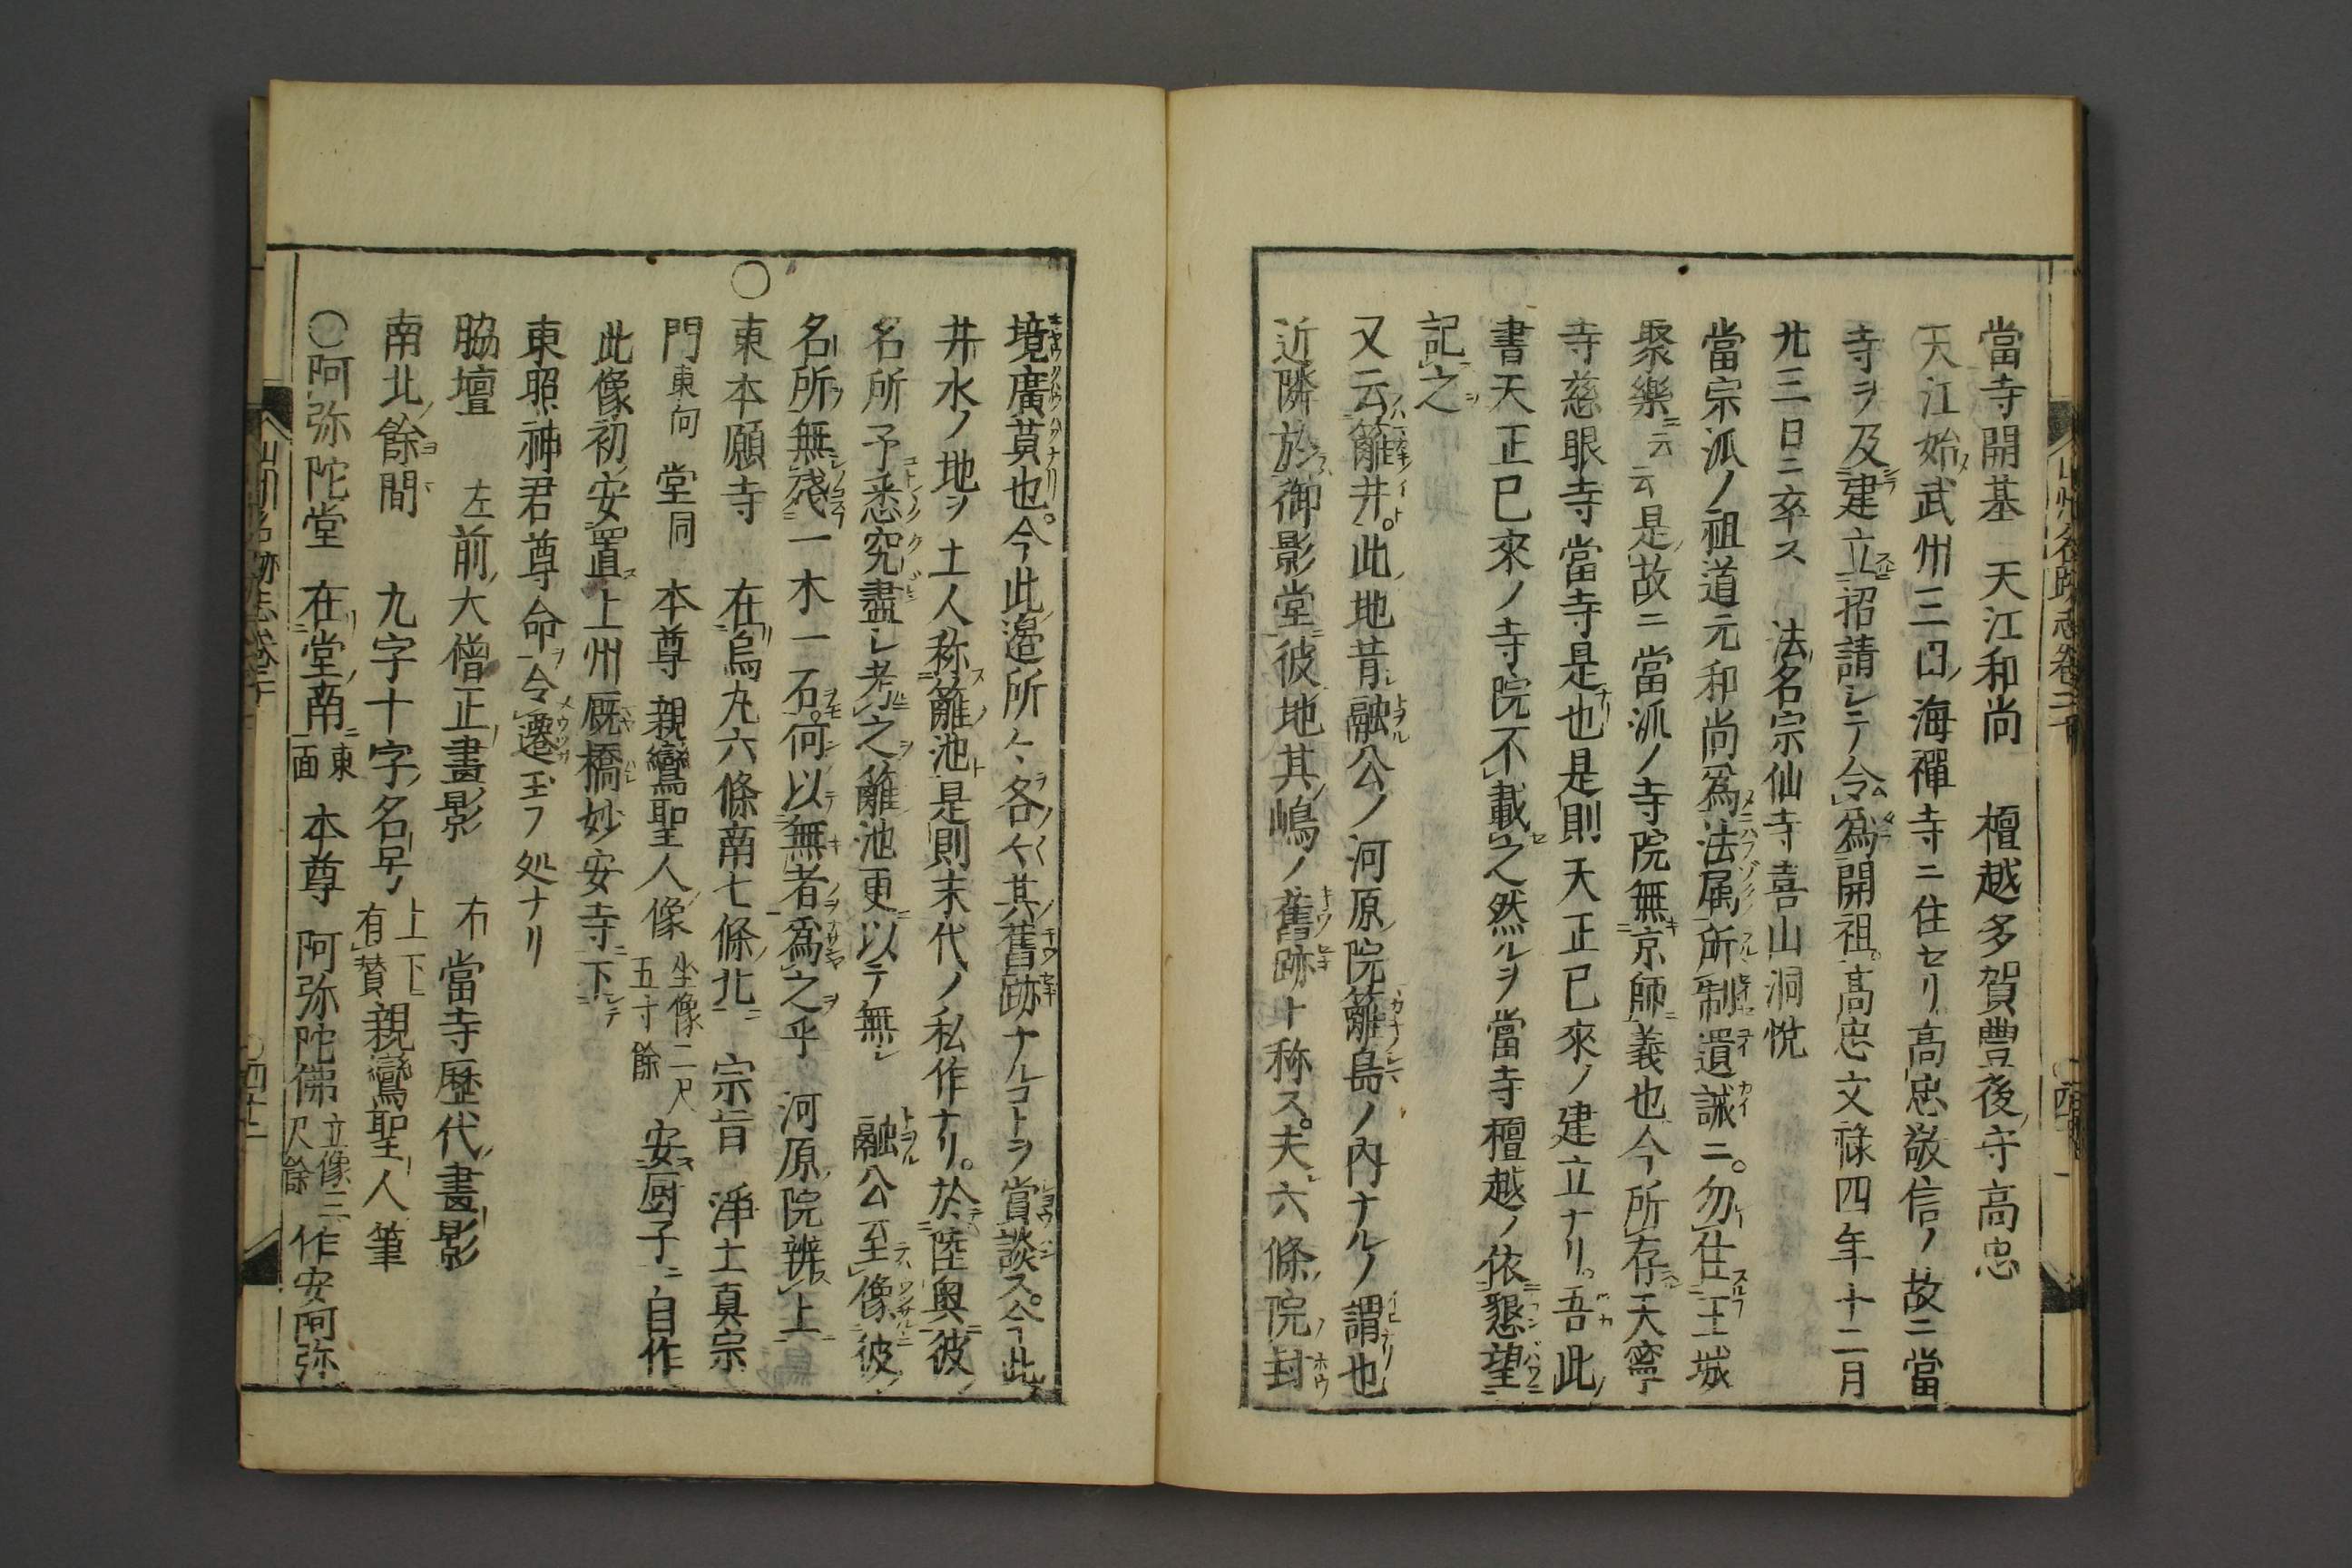 當寺開基　天江和尚　檀越多賀豊後ノ守高忠
天江始メ武州三田ノ海禪寺ニ住セリ高忠敬信ノ故ニ當
寺ヲ及建立招請レテ令為開祖。高忠文禄四年十二月
廿三日ニ卒ス　法名宗仙寺喜山洞悦
當宗派ノ祖道元和尚為法属所制遺誡ニ。勿住王城
聚樂ニ云云是故ニ當派ノ寺院無京師義也今所存天寧
寺慈眼寺當寺是也是則天正已來ノ建立ナリ。吾此
書天正已來ノ寺院不載之然ルヲ當寺檀越ノ依懇望
記之
又云籬井。此地昔融公ノ河原院籬島ノ内ナルノ謂也
近隣於御影堂彼地其嶋ノ舊跡ト称ス。夫六條院封
境廣莫也。今此邉所々各々其舊跡ナルコトヲ賞談ス。今此
井水ノ地ヲ土人称籬池是則末代ノ私作ナリ。於陸奥彼
名所予悉究盡レ考之籬池更以テ無レ　融公至像彼
名所無殘一木一石。何以無者為之乎　河原院辨上
○東本願寺　在烏丸六條南七條北　宗旨　淨土真宗
門東向　堂同　本尊　親鸞聖人像　坐像二尺五寸餘　安厨子ニ自作
此像初安置上州厩橋妙安寺下
東照神君尊命令遷玉フ処ナリ
脇壇　左前ノ大僧正畫影　右當寺歴代畫影
南北ノ餘間　九字十字ノ名号　上下有賛　親鸞聖人筆
○阿弥陀堂　在堂南　東面　本尊　阿弥陀佛　立像三尺餘　作安阿弥